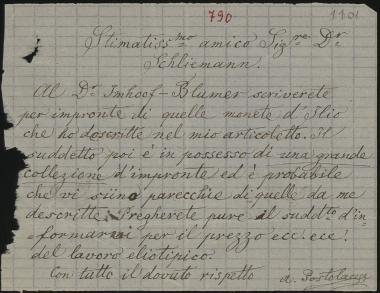 790
1101
Stimatiss.mo amico Sig.re Dr.
Schliemann.
Al Dr. Imhoof-Blumer scriverete
per impronte di quelle monete d'Ilio
che ho descritte nel mio articoletto. Il
suddetto poi è in possesso di una grande
collezione d'impronte ed è probabile
che vi siino parecchie di quelle da me
descritte. Pregherete pure il sudd.to d'in-
formarvi per il prezzo ecc. ecc.
del lavoro eliotipico.
Con tutto il dovuto rispetto
A. Postolacca